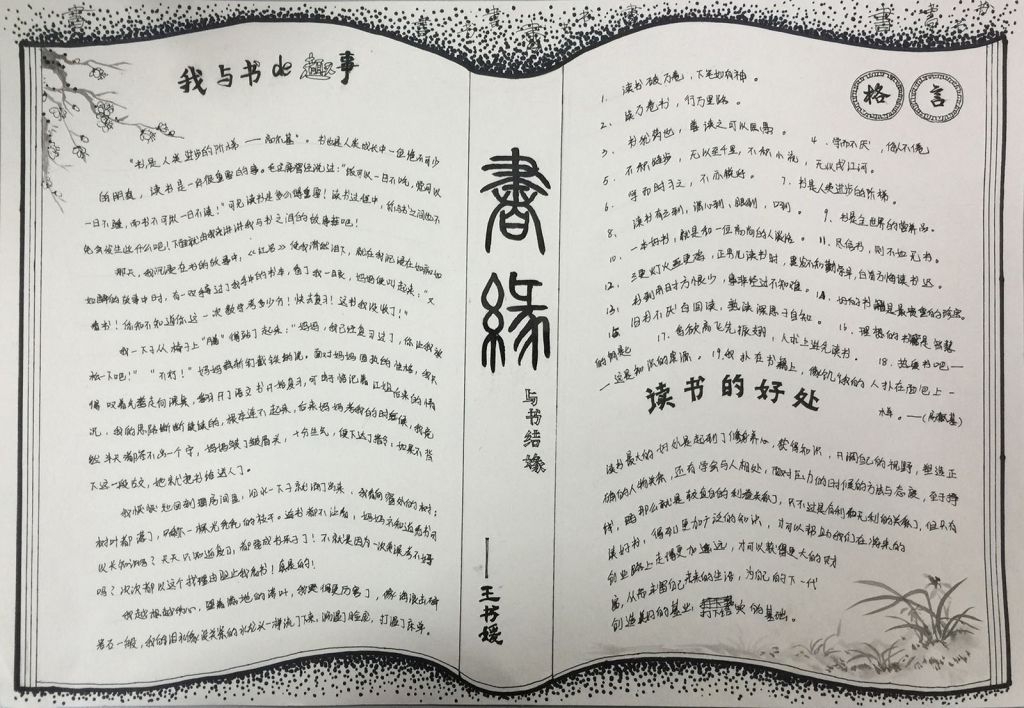 我与书de趣事
"书是人类进步的阶梯——高尔基"。书也是人类成长中一位绝不可少
的朋友,读书是一件很重要的事。毛主席曾经说过:"饭可以一日不吃,觉可以
一日不睡,而书不可以一日不读!"可见读书是多么得重要!读书过程中,你与书之间怕不
免会发生些什么吧!下面就由我来讲讲我与书之间的故事吧!
那天,我沉浸在书的故事中,《红岩》使我潸然泪下,就在我沉浸在如痴如
如醉的故事中时,有一双手夺过了我手中的书本,看了我一眼,妈妈便叫起来:"又
看书!你知不知道你这一次数学考多少分!快去复习!这书我没收了!"
我一下子从椅子上"腾"得站了起来:"妈妈,我已经复习过了,你让我放
松一下吧!""不行!"妈妈斩钉截铁的说,面对妈妈固执的性格,我只
得叹着气走向课桌,翻开了语文书开始复习,可由于惦记着江姐后来的情
况,我的思路断断续续的,根本连不起来,后来妈妈考我的的时候,我竟
然半天都答不出一个字,妈妈皱了皱眉头,十分生气,便下达了指令:如果不背
下这一段古文,她就把书给送人了。
我怏怏地回到房间里,泪水一下子就涌了出来,我看向窗外的树;
树叶都落了,只剩一棵光秃秃的枝干。连书都不让看,妈妈不知道看书可
以长知识吗?天天只知道复习,都要成书呆子了!不就是因为一次考试考不好
吗?次次都以这个找理由阻止我看书!条条的!
我越想越伤心,望着满地的落叶,我哭得更厉害了,像海浪击碎
岩石一般,我的泪水像没关紧的水龙头一样流了下来,润湿了脸旁,打湿了床单。
書緣
与书结缘
——王书媛
格言
1. 读书破万卷,下笔如有神。
2. 读万卷书,行万里路。
3. 书犹药也,善读之可以医愚。
4. 学而不厌,诲人不倦
5. 不积跬步,无以至千里,不积小流,无以成江河。
6. 学而时习之,不亦悦乎。
7. 书是人类进步的阶梯。
8. 读书有三到,谓心到,眼到,口到。
9. 书是全世界的营养品。
10. 一本好书,就是和一位高尚的人谈话。
11. 尽信书,则不如无书。
12. 三更灯火五更鸡,正男儿读书时,黑发不知勤学早,白首方悔读书迟。
13. 书到用时方恨少,事非经过不知难。
14. 好的书籍是最贵重的珍宝。
15. 旧书不厌百回读,熟读深思子自知。
16. 理想的书籍是智慧
的钥匙
17. 鸟欲高飞先振翅,人求上进先读书。
18. 热爱书吧——
——这是知识的源泉。
19. 我扑在书籍上,像饥饿的人扑在面包上一
样。——(高尔基)
读书的好处
读书最大的好处是起到了修身养心,获得知识,开阔自己的视野,塑造正
确的人物关系,还有学会与人相处,面对压力的时候的方法与态度,至于挣
钱,那么就是较直白的利益关系了,只不过是有利和无利的关系了,但只有
读好书,得到更加广泛的知识,才可以帮助我们在将来的
创业路上走得更加遥远,才可以获得更大的财
富,从而丰富自己未来的生活,为自己的下一代
创造美好的基业,打下坚实的基础。